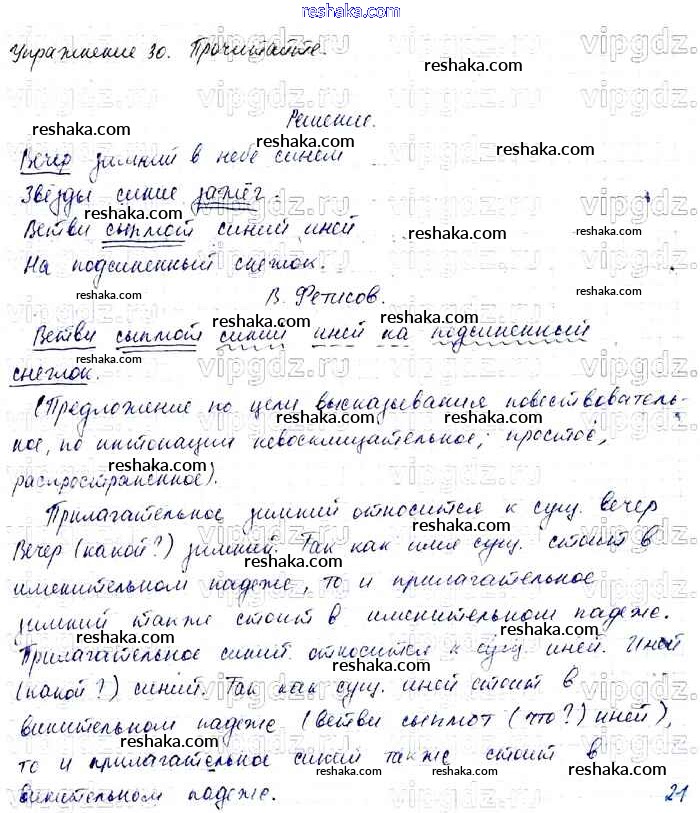 reshaka.com
Упражнение 30. Прочитайте.
Решение.
Вечер зимний в небе синем
Звёзды синие зажёг.
Ветви сыплют синий иней
На подсиненный снежок.
В. Фетисов.
Ветви сыплют синий иней на подсиненный
снежок.
(Предложение по цели высказывания повествователь-
ное, по интонации невосклицательное, простое,
распространенное).
Прилагательное зимний относится к сущ. вечер
Вечер (какой?) зимний. Так как имя сущ. стоит в
именительном падеже, то и прилагательное
зимний также стоит в именительном падеже.
Прилагательное синий относится к сущ. иней. Иней
(какой?) синий. Так как сущ. иней стоит в
винительном падеже (ветви сыплют (что?) иней),
то и прилагательное синий также стоит в
винительном падеже.
21